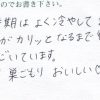 のでお書き下さい。
期は よく冷やして
がカリッと なるまで
ごいています。
巣ごもり おいしい♡